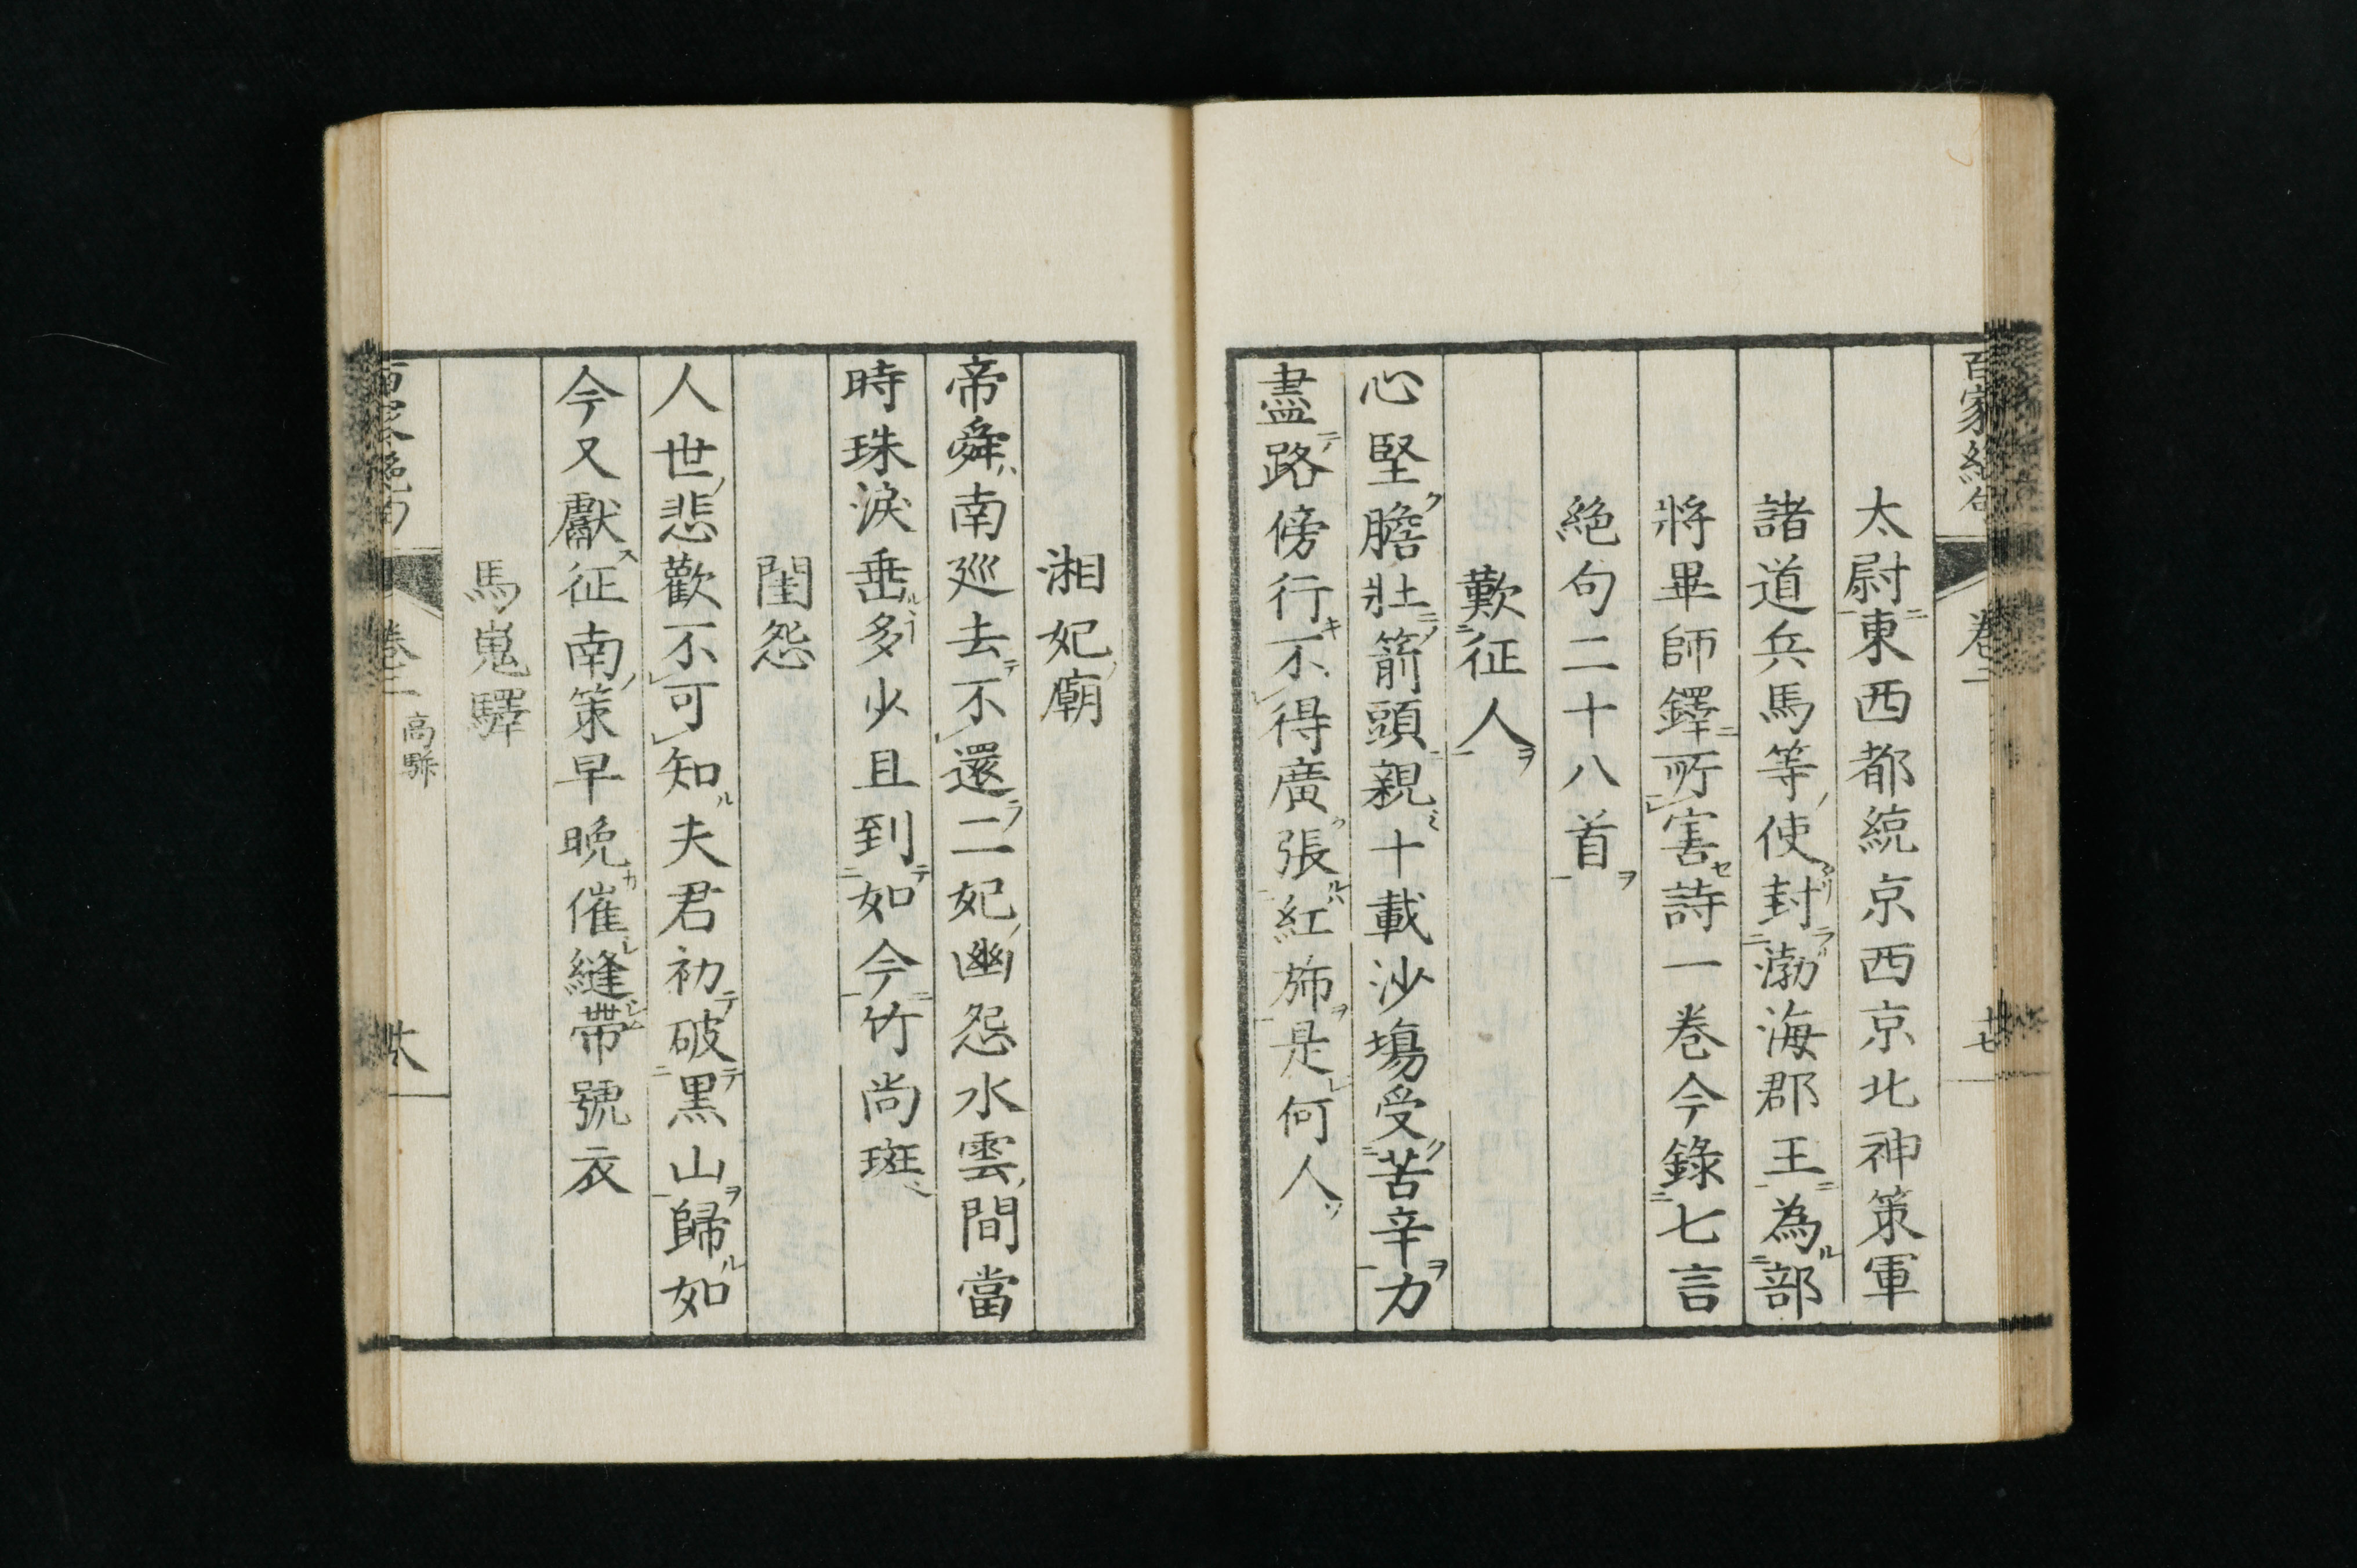 百家絶句 卷二 廿七
太尉東西都統京西京北神策軍
諸道兵馬等使封渤海郡王為部
將畢師鐸所害詩一卷今錄七言
絶句二十八首
歎征人
心堅膽壯箭頭親十載沙塲受苦辛力
盡路傍行不得廣張紅斾是何人
湘妃廟
帝舜南巡去不還二妃幽怨水雲間當
時珠淚垂多少且到如今竹尚斑
閨怨
人世悲歡不可知夫君初破黒山歸如
今又獻征南策早晚催縫帶號衣
馬嵬驛
百家絶句 卷二 高駢